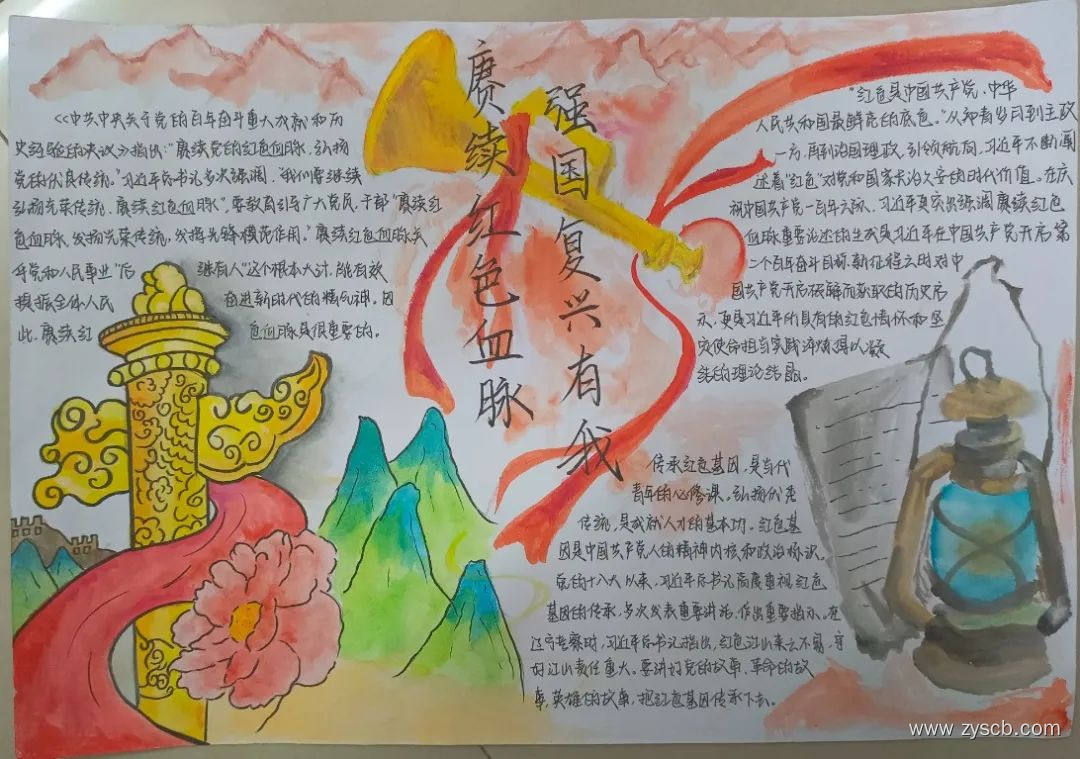 赓续红色血脉
强国复兴有我
<<中共中央关于党的百年奋斗重大成就和历
史经验的决议>>指出:"赓续党的红色血脉,弘扬
党的优良传统。"习近平总书记多次强调,"我们要继续
弘扬光荣传统、赓续红色血脉",要教育引导广大党员、干部"赓续红
色血脉、发扬光荣传统,发挥先锋模范作用。"赓续红色血脉关
乎党和人民事业"后继有人"这个根本大计,能有效
提振全体人民奋进新时代的精气神。因
此,赓续红色血脉是很重要的。
"红色是中国共产党、中华
人民共和国最鲜亮的底色。"从知青岁月到主政
一方,再到治国理政、引领航向,习近平不断阐
述着"红色"对党和国家长治久安的时代价值。在庆
祝中国共产党一百年之际,习近平真实出强调赓续红色
血脉重要论述的生成是习近平在中国共产党开启第
二个百年奋斗目标、新征程之时对中
国共产党开启破解而获取的历史启
示,更是习近平所具有的红色情怀和坚
定使命担当实践淬炼得以凝
结的理论结晶。
传承红色基因,是当代
青年的必修课,弘扬优良
传统,是成就人才的基本功。红色基
因是中国共产党人的精神内核和政治标识。
党的十八大以来,习近平总书记高度重视红色
基因的传承,多次发表重要讲话,作出重要指示。在
辽宁考察时,习近平总书记指出,红色江山来之不易,守
好江山责任重大。要讲好党的故事、革命的故
事、英雄的故事,把红色基因传承下去。
www.zyscb.com